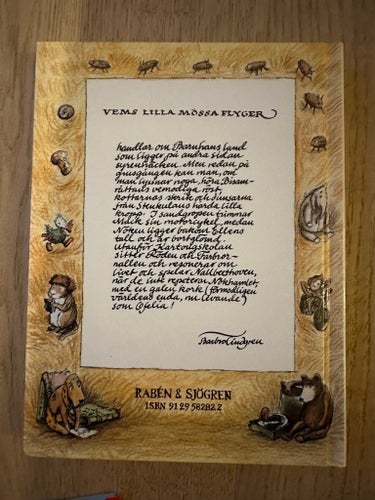 VEMS LILLA MÖSSA FLYGER
handlar om Barnhans lund
som ligger på andra sidan
syrenhäcken. Men redan på
grusgången kan man, om
man lyssnar noga, höra Bisam-
råttans vemodiga röst,
Kottarnas skrik och dunsarna
från Skakulans hårda lilla
kropp. I sandgropen trimmar
Macik sin motorcykel, medan
Nöken ligger bakom Ellens
tall och är bortglömd.
Utanför Kartongskolan
sitter Råden och Farbror-
nallen och resonerar om
livet och spelar Nallbeethoven,
när de inte repeterar Nökhamlet
med en galen kork (förmodligen
världens enda, nu levande)
som Ofelia!
Barbro Lindgren
RABÉN & SJÖGREN
ISBN 91 29 58282 2